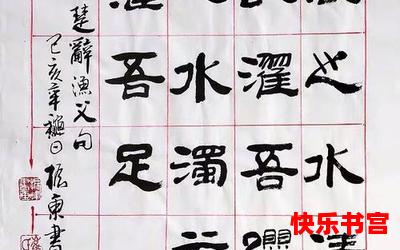 之水清
濯吾纓
水濁
濯吾足
楚辭漁父句
己亥年穐日振東書
快乐书宫